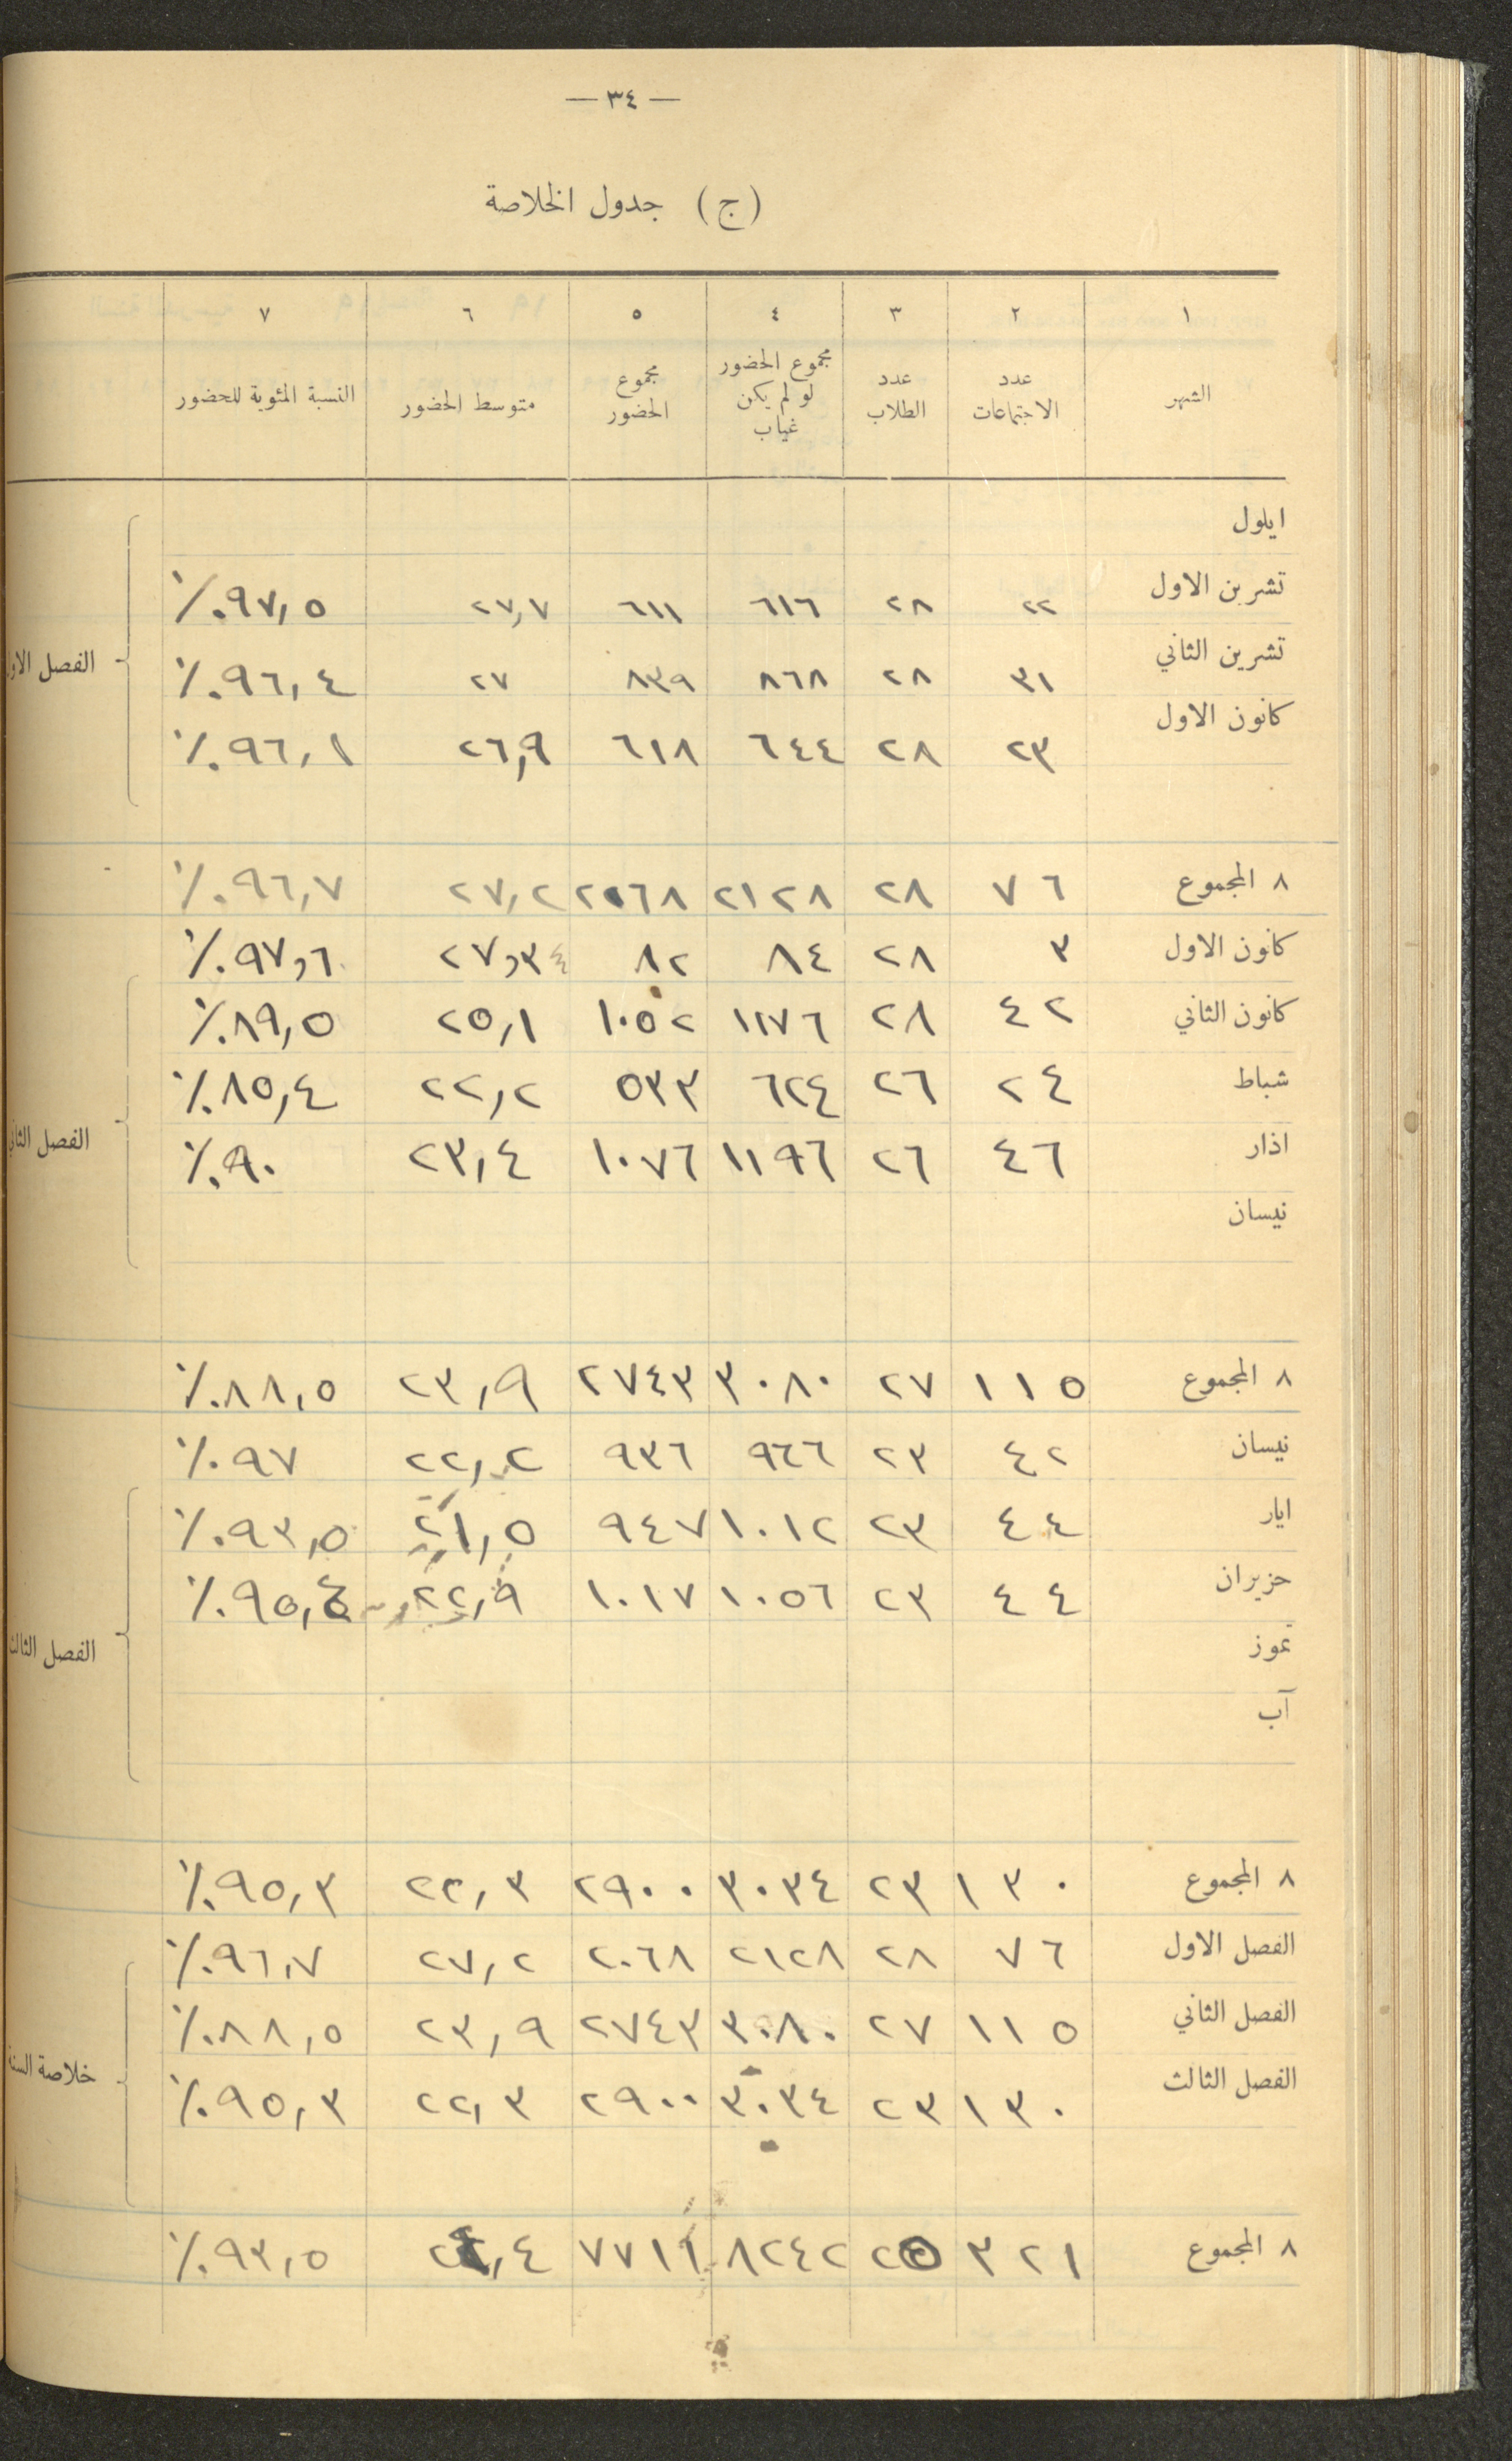 — ٣٤ —
(ج) جدول الخلاصة
١ ٢ ٣ ٤ ٥ ٦ ٧
الشهر | عدد الاجتماعات | عدد الطلاب | مجموع الحضور لو لم يكن غياب | مجموع الحضور | متوسط الحضور | النسبة المئوية للحضور
ايلول
تشرين الاول ٢٢ ٢٨ ٦١٦ ٦١١ ٢٧,٧ ٩٧,٥٪
تشرين الثاني ٣١ ٢٨ ٨٦٨ ٨٣٩ ٢٧ ٩٦,٤٪
الفصل
كانون الاول ٢٣ ٢٨ ٦٤٤ ٦١٨ ٢٦,٩ ٩٦,١٪
٨ المجموع ٧٦ ٢٨ ٢١٢٨ ٢٠٦٨ ٢٧,٢ ٩٦,٧٪
كانون الاول ٣ ٢٨ ٨٤ ٨٢ ٢٧,٣٤ ٩٧,٦٪
كانون الثاني ٤٢ ٢٨ ١١٧٦ ١٠٥٢ ٢٥,١ ٨٩,٥٪
شباط ٢٤ ٢٦ ٦٢٤ ٥٣٣ ٢٢,٢ ٨٥,٤٪
اذار ٤٦ ٢٦ ١١٩٦ ١٠٧٦ ٢٣,٤ ٩٠٪
الفصل
نيسان
٨ المجموع ١١٥ ٢٧ ٣٠٨٠ ٢٧٤٣ ٢٣,٩ ٨٨,٥٪
نيسان ٤٢ ٢٣ ٩٦٦ ٩٣٦ ٢٢,٢ ٩٧٪
ايار ٤٤ ٢٣ ١٠١٢ ٩٤٧ ٢١,٥ ٩٣,٥٪
حزيران ٤٤ ٢٣ ١٠٥٦ ١٠١٧ ٢٢,٩ ٩٥,٤٪
تموز
الفصل الثالث
آب
٨ المجموع ١٣٠ ٢٣ ٣٠٣٤ ٢٩٠٠ ٢٢,٣ ٩٥,٣٪
الفصل الاول ٧٦ ٢٨ ٢١٢٨ ٢٠٦٨ ٢٧,٢ ٩٦,٧٪
الفصل الثاني ١١٥ ٢٧ ٣٠٨٠ ٢٧٤٣ ٢٣,٩ ٨٨,٥٪
خلاصة
الفصل الثالث ١٣٠ ٢٣ ٣٠٣٤ ٢٩٠٠ ٢٢,٣ ٩٥,٣٪
٨ المجموع ٣٢١ ٢٥ ٨٢٤٢ ٧٧١١ ٢٤,٤ ٩٣,٥٪